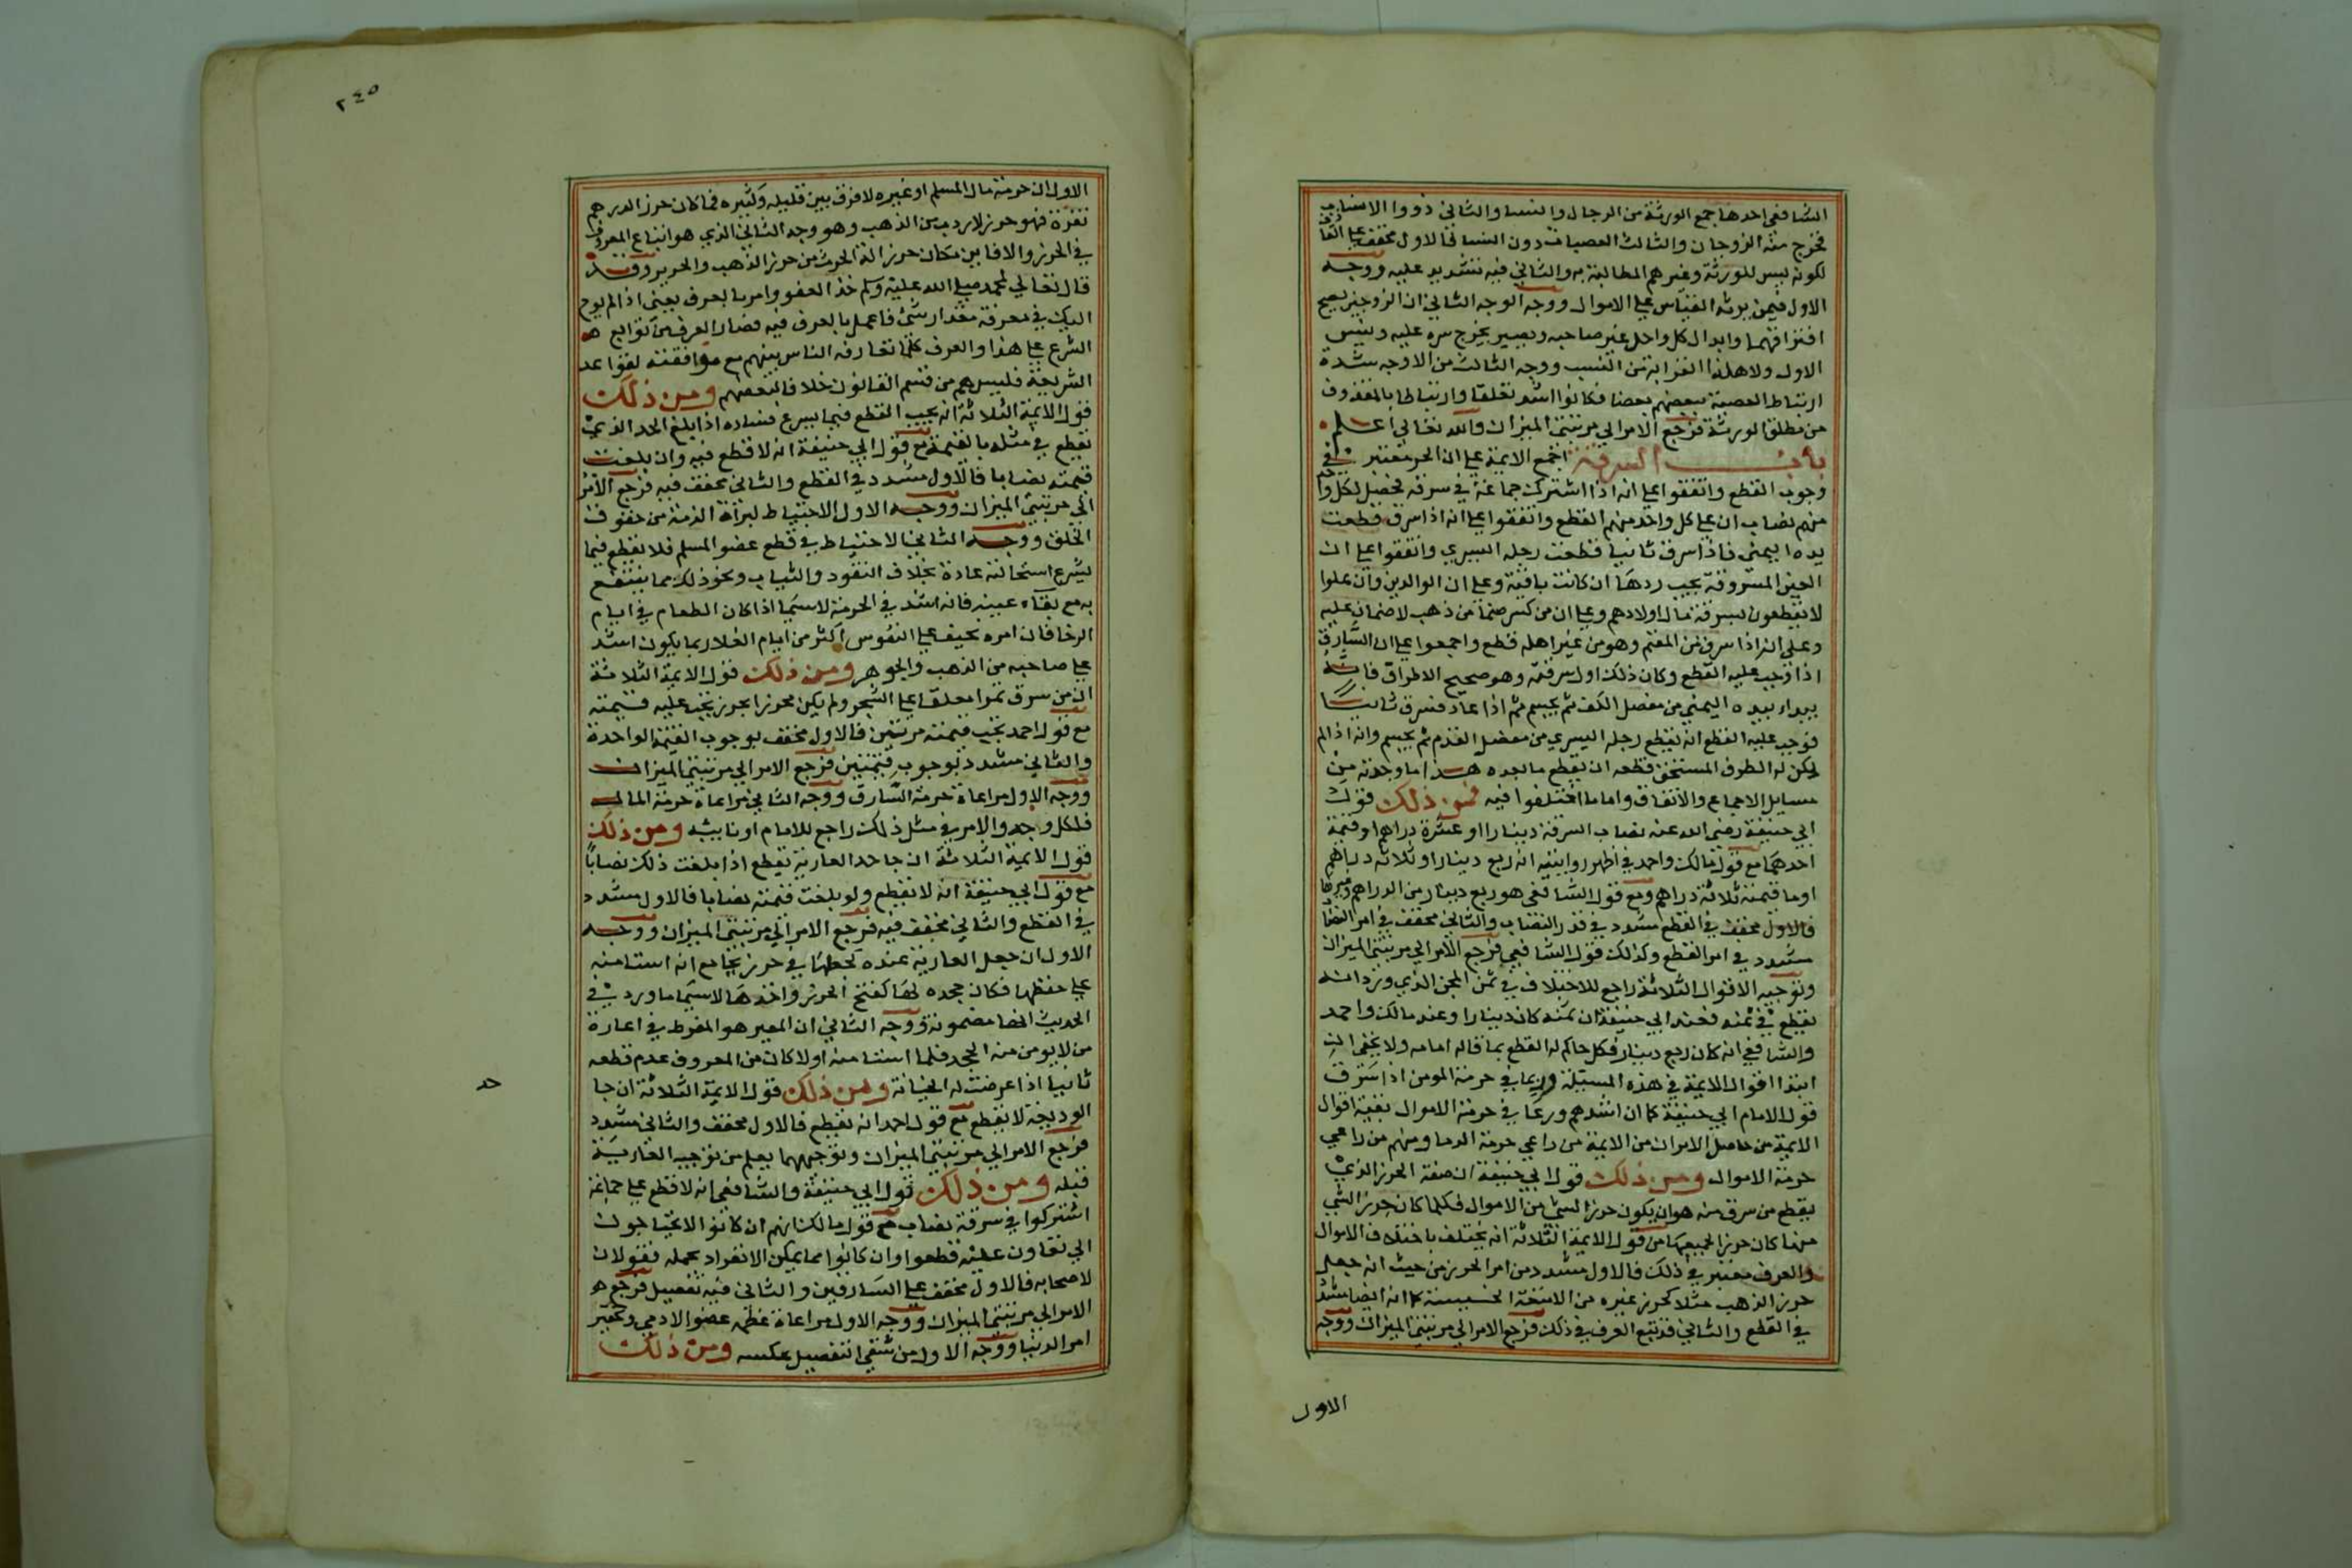 الشافعي احدها جميع الورثة من الرجال والنسا والثاني ذووا الانساب
فخرج منه الزوجان والثالث العصبات دون النسا فالاول مخفف على القاذف
لكونه ليس للورثة وغيرهم المطالبة به والثاني فيه تشديد عليه ووجه
الاول فيمن يرثه القياس على الاموال ووجه الوجه الثاني ان الزوجين يصح
افتراقهما وابدال كل واحد غير صاحبه ويصير يخرج سره عليه ونيس
الاول ولا هكذا القرابة من النسب ووجه الثالث من الاوجه شدة
ارتباط العصبة ببعضهم بعضا فكانوا اشد تعلقا وارتباطا بالمقذوف
من مطلق الورثة فرجع الامر الي مرتبتي الميزان والله تعالي اعلم
باب السرقة اجمع الايمة على ان الحرز معتبر في
وجوب القطع واتفقوا على انه اذا اشتركت جماعة في سرقة فحصل لكل واحد
منهم نصاب ان على كل واحد منهم القطع واتفقوا على انه اذا سرق قطعت
يده اليمني فاذا سرق ثانيا قطعت رجله اليسري واتفقوا على ان
العين المسروقة يجب ردها ان كانت باقية وعلى ان الوالدين وان علوا
لا يقطعون بسرقة مال اولادهم وعلى ان من كسر صنما من ذهب لا ضمان عليه
وعلى انه اذا سرق من المغنم وهو من غير اهله قطع واجمعوا على ان السارق
اذا وجب عليه القطع وكان ذلك اول سرقته وهو صحيح الاطراف فانه
يبداء بيده اليمني من مفصل الكف ثم يحسم ثم اذا عاد فسرق ثانيا
فوجب عليه القطع انه يقطع رجله اليسري من مفصل القدم ثم يحسم وانه اذا لم
يكن له الطرف المستحق قطعه ان يقطع ما بعده هذا ما وجدته من
مسايل الاجماع والاتفاق واما ما اختلفوا فيه فمن ذلك قول
ابي حنيفة رضي الله عنه نصاب السرقة دينارا او عشرة دراهم او قيمة
احدهما مع قول مالك واحمد في اظهر روايتيه انه ربع دينار او ثلاثة دراهم
او ما قيمته ثلاثة دراهم ومع قول الشافعي هو ربع دينار من الدراهم وغيرها
فالاول مخفف في القطع مشدد في قدر النصاب والثاني مخفف في امر النصاب
مشدد في امر القطع وكذلك قول الشافعي فرجع الامر الي مرتبتي الميزان
وتوجيه الاقوال الثلاثة راجع للاختلاف في ثمن المجن الذي ورد انه
يقطع في ثمنه فعند ابي حنيفة ان ثمنه كان دينارا وعند مالك واحمد
والشافعي انه كان ربع دينار فكل حاكم له القطع بما قاله امامه ولا يخفى ان
ابتدا اقوال الايمة في هذه المسيلة وربما في حرمة المومن اذا سرق
قول الامام ابي حنيفة كما ان اشدهم ورعا في حرمة الاموال بقية اقوال
الايمة من حاصل الامر ان من الايمة من راعي حرمة الدما ومنهم من راعي
حرمة الاموال ومن ذلك قول ابي حنيفة ان صفة الحرز الذي
يقطع من سرق منه هو ان يكون حرزا لشي من الاموال فكلما كان حرزا لشي
منها كان حرزا لجميعها مع قول الايمة الثلاثة انه يختلف باختلاف الاموال
والعرف معتبر في ذلك فالاول مشدد من امر الحرز من حيث انه جعل
حرز الذهب مثلا كحرز غيره من الامتعة الخسيسة كما انه ايضا مشدد
في القطع والثاني قد تتبع العرف في ذلك فرجع الامر الي مرتبتي الميزان ووجه
الاول
٢٤٥
الاول ان حرمة مال المسلم او غيره لا فرق بين قليله وكثيره فما كان حرز الدرهم
نقرة فهو حرز لاردب من الذهب وهو وجه الثاني الذي هو اتباع المعروف
في الحرز والا فاين مكان حرز الة الحرث من حرز الذهب والحرير وقد
قال تعالي لمحمد صلى الله عليه وسلم خذ العفو وامر بالعرف يعني اذا لم يوح
اليك في معرفة مقدار شي فاعمل بالعرف فيه فصار العرف من توابع
الشرع على هذا والعرف كلما تعارفه الناس بينهم مع موافقته لقواعد
الشريعة فليس هم من قسم القانون خلافا لبعضهم ومن ذلك
قول الايمة الثلاثة انه يجب القطع فيما يسرع فساده اذا بلغ الحد الذي
تقطع في مثله بالقيمة مع قول ابي حنيفة انه لا قطع فيه وان بلغت
قيمته نصابا فالاول مشدد في القطع والثاني مخفف فيه فرجع الامر
الي مرتبتي الميزان ووجه الاول الاحتياط لبراة الذمة من حقوق
الخلق ووجه الثاني الاحتياط في قطع عضو المسلم فلا نقطع فيما
يشرع استحالته عادة بخلاف النقود والثياب ونحو ذلك مما ينتفع
به مع بقاء عينه فانه اشد في الحرمة لا سيما اذا كان الطعام في ايام
الرخا فان امره يخف على النفوس اكثر من ايام الغلا ربما يكون اشد
على صاحبه من الذهب والجوهر ومن ذلك قول الايمة الثلاثة
ان من سرق تمرا معلقا على الشجر ولم يكن محرزا بحرز يجب عليه قيمته
مع قول احمد تجب قيمته مرتين فالاول مخفف بوجوب القيمة الواحدة
والثاني مشدد بوجوب قيمتين فرجع الامر الي مرتبتي الميزان
ووجه الاول مراعاة حرمة السارق ووجه الثاني مراعاة حرمة المال
فلكل وجه والامر في مثل ذلك راجع للامام او نايبه ومن ذلك
قول الايمة الثلاثة ان جاحد العارية يقطع اذا بلغت ذلك نصابا
مع قول ابي حنيفة انه لا يقطع ولو بلغت قيمته نصابا فالاول مشدد
في القطع والثاني مخفف فيه فرجع الامر الي مرتبتي الميزان ووجه
الاول ان جعل العارية عنده كجعلها في حرز بجامع انه استامنه
على حفظها فكان جحده لها كفتح الحرز واخذها لا سيما ما ورد في
الحديث انها مضمونة ووجه الثاني ان المعير هو المفرط في اعارة
من لا يومن منه الجحد فلما استامنه اولا كان من المعروف عدم قطعه
ثانيا اذا عرضت له الخيانة ومن ذلك قول الايمة الثلاثة ان جا
حد
الوديعة لا يقطع مع قول احمد انه يقطع فالاول مخفف والثاني مشدد
فرجع الامر الي مرتبتي الميزان وتوجيههما يعلم من توجيه العارية
قبله ومن ذلك قول ابي حنيفة والشافعي انه لا قطع على جماعة
اشتركوا في سرقة نصاب مع قول مالك انهم ان كانوا لا يحتاجون
الي تعاون عليه قطعوا وان كانوا مما يمكن الانفراد بحمله فقولان
لاصحابه فالاول مخفف على السارقين والثاني فيه تفصيل فرجع
الامر الي مرتبتي الميزان ووجه الاول مراعاة عظم عضو الادمي وتحقير
امر الدنيا ووجه الاول من شقي التفصيل عكسه ومن ذلك